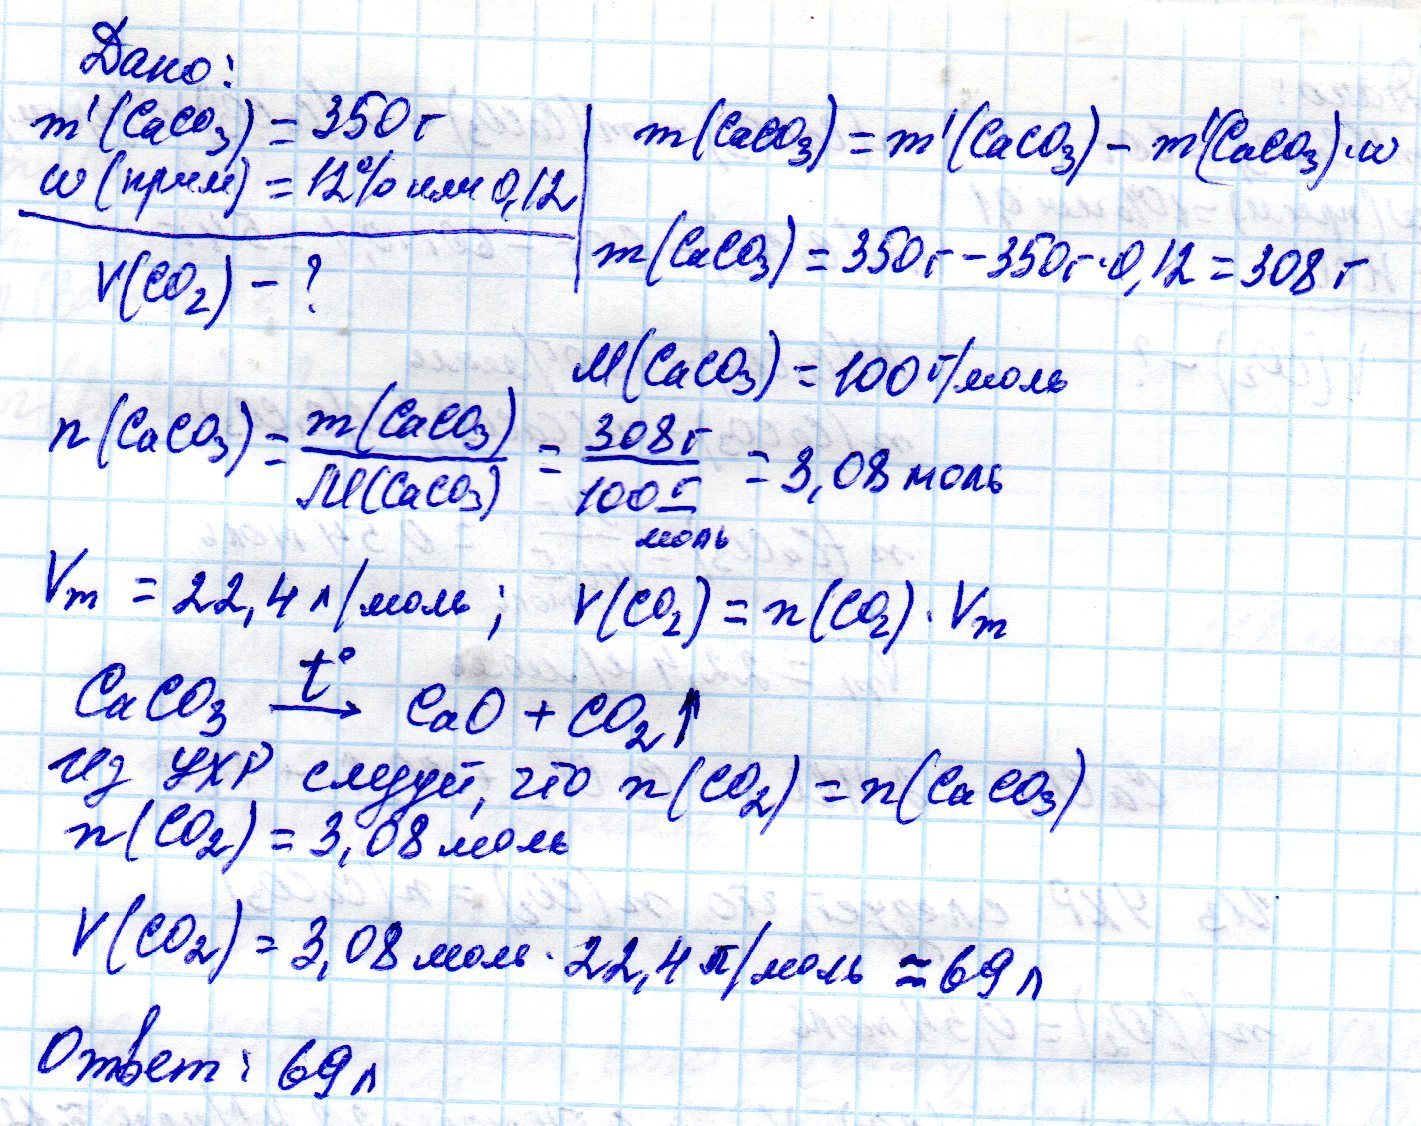 Дано:
m'(CaCO₃) = 350 г
w(прим) = 12% или 0,12
V(CO₂) - ?
m(CaCO₃) = m'(CaCO₃) - m'(CaCO₃)·w
m(CaCO₃) = 350 г - 350 г·0,12 = 308 г
M(CaCO₃) = 100 г/моль
n(CaCO₃) = m(CaCO₃) / M(CaCO₃) = 308 г / 100 г/моль = 3,08 моль
Vm = 22,4 л/моль; V(CO₂) = n(CO₂)·Vm
CaCO₃ t° → CaO + CO₂↑
Из УХР следует, что n(CO₂) = n(CaCO₃)
n(CO₂) = 3,08 моль
V(CO₂) = 3,08 моль · 22,4 л/моль ≈ 69 л
Ответ: 69 л